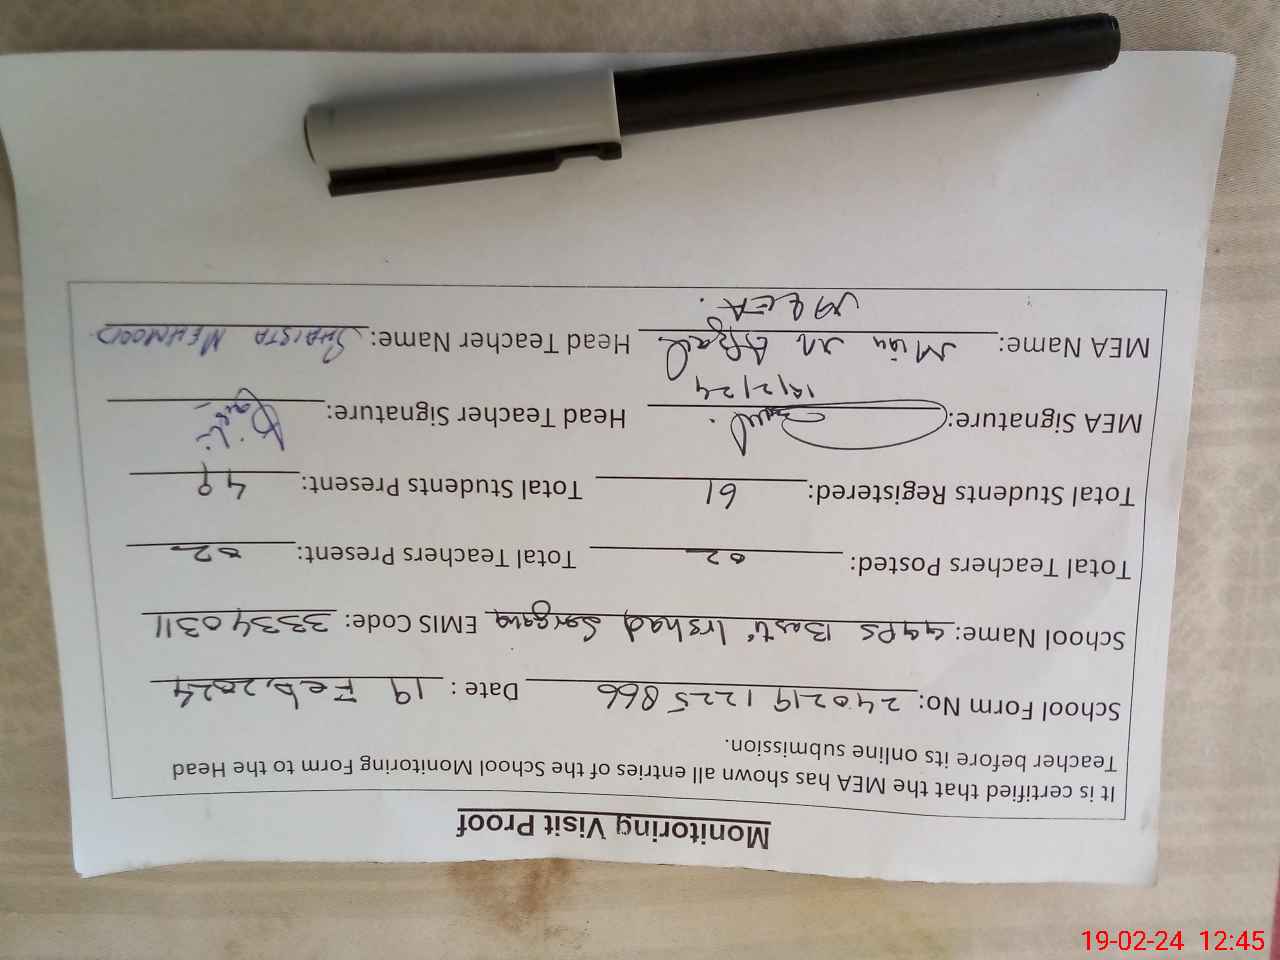 Monitoring Visit Proof
It is certified that the MEA has shown all entries of the School Monitoring Form to the Head
Teacher before its online submission.
School Form No: 240219 1225866 Date : 19 Feb, 2024
School Name: GGPS Basti Irshad Sargana EMIS Code: 33340311
Total Teachers Posted: 02 Total Teachers Present: 02
Total Students Registered: 61 Total Students Present: 49
MEA Signature: Head Teacher Signature:
19/2/24
MEA Name: Mian M Afzal Head Teacher Name: SHAISTA MEHMOOD
19-02-24 12:45